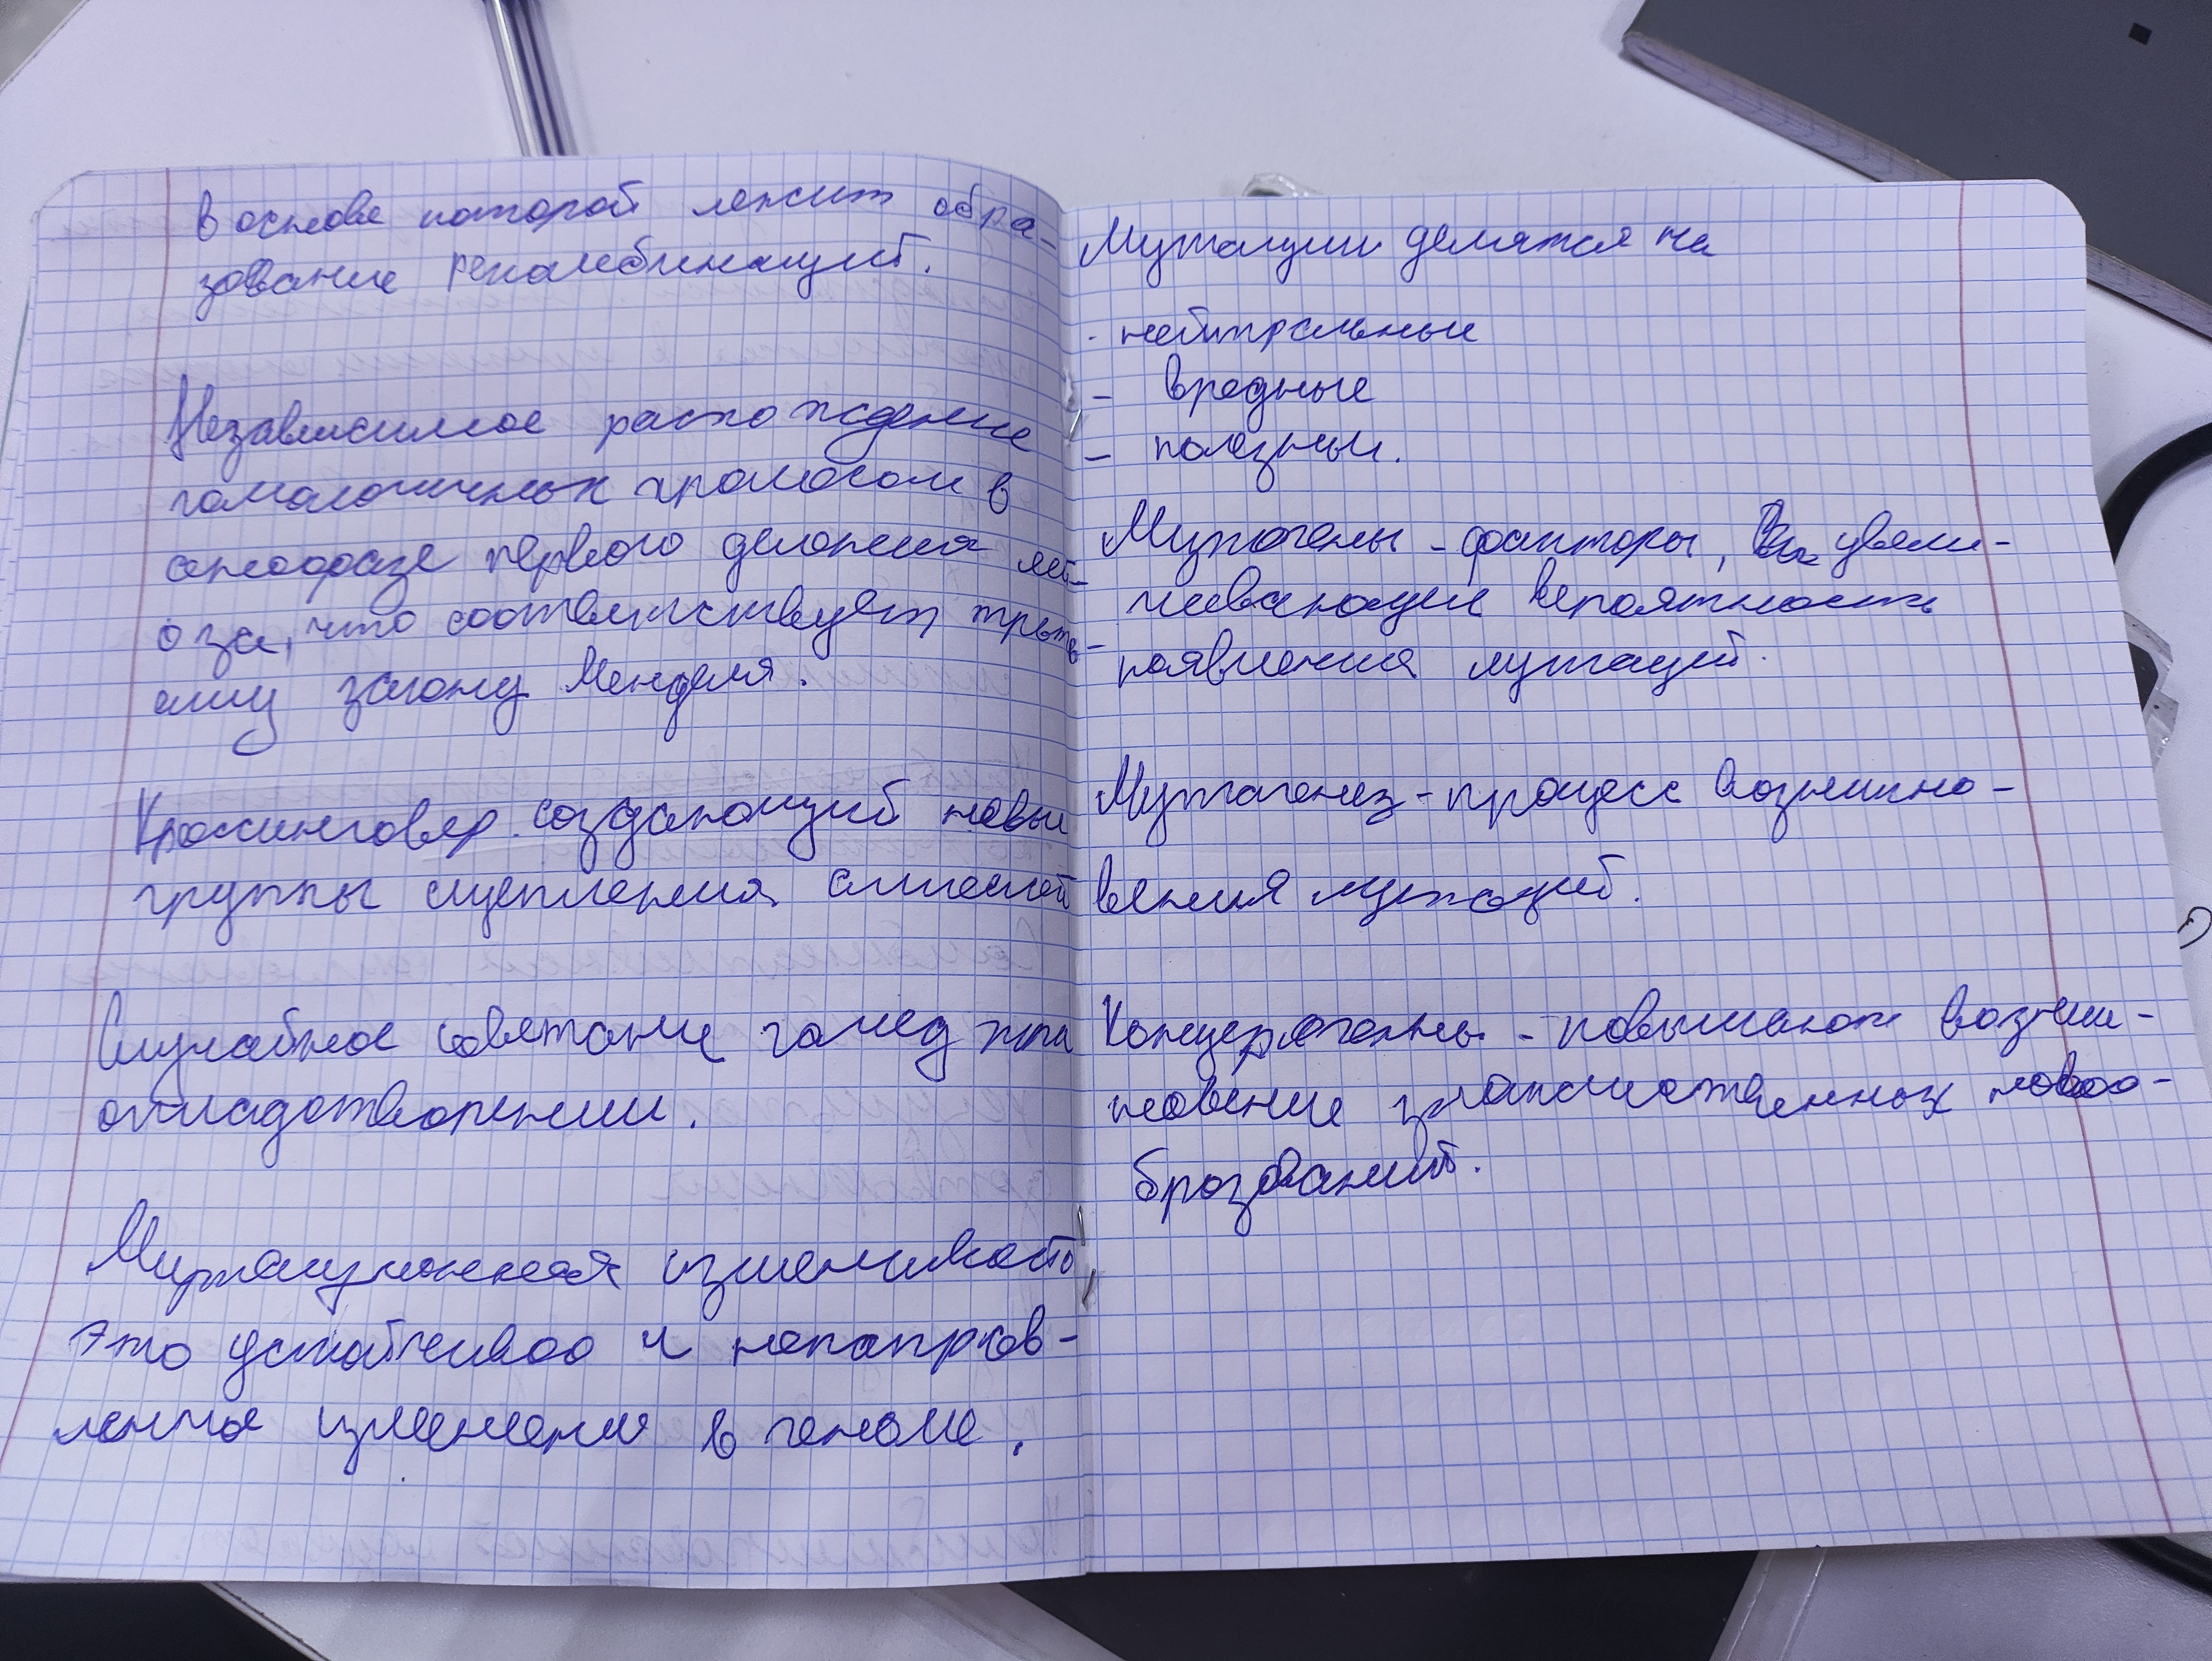 в основе которой лежит обра-
зование рекомбинаций.
Независимое расхождение
гомологичных хромосом в
анафазе первого деления мей-
оза, что соответствует треть-
ему закону Менделя.
Кроссинговер создающий новые
группы сцепления аллелей
Случайное сочетание гамед при
оплодотворении.
Мутационная изменчивость
это устойчивое и ненаправ-
ленное изменение в геноме.
Мутации делятся на
- нейтральные
- вредные
- полезные.
Мутогены - факторы, увели-
чивающие вероятность
появления мутаций.
Мутагенез - процесс возникно-
вения мутаций.
Концерогенны - повышают возник-
новение злокачественных новоо-
бразований.